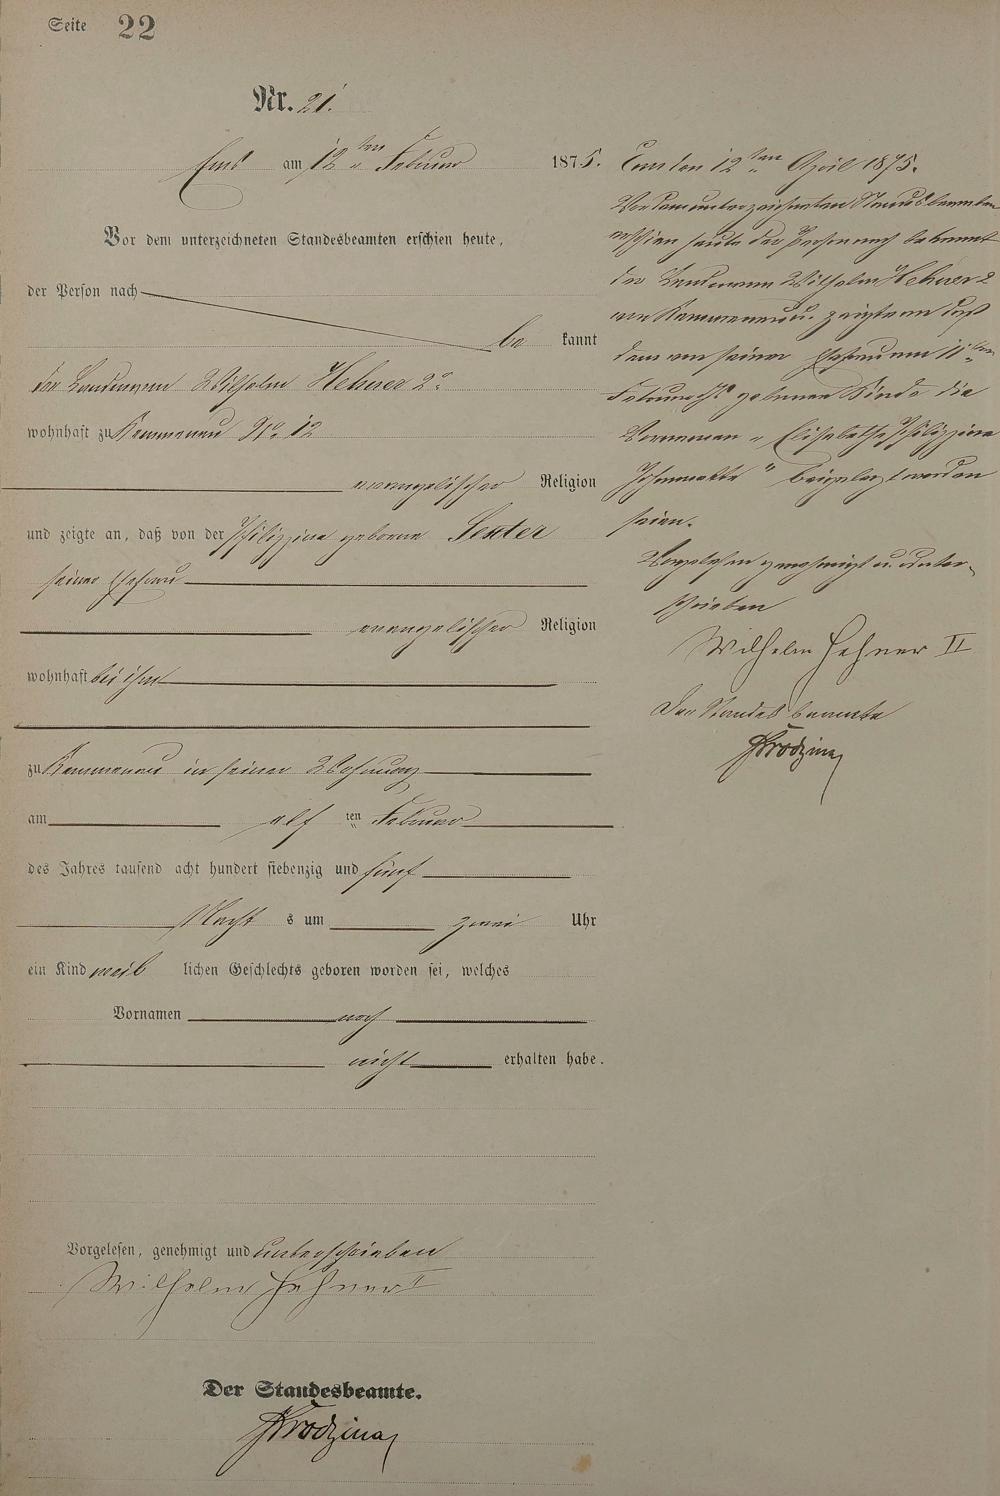 Seite 22
Nr. 21.
Ems am 12ten Februar 1875.
Vor dem unterzeichneten Standesbeamten erschien heute,
der Person nach
be kannt
der Landmann Wilhelm Hehner 2r
wohnhaft zu Kemmenau No 12
evangelischer Religion
und zeigte an, daß von der Philippine geborene Sexter
seiner Ehefrau
evangelischer Religion
wohnhaft bei ihm
zu Kemmenau in seiner Wohnung
am elf ten Februar
des Jahres tausend acht hundert siebenzig und fünf
Nacht s um zwei Uhr
ein Kind weib lichen Geschlechts geboren worden sei, welches
Vornamen noch
nicht erhalten habe.
Vorgelesen, genehmigt und unterschrieben
Wilhelm Hehner II
Der Standesbeamte.
Ems den 12ten April 1875.
Vor dem unterzeichneten Standesbeamten
erschien heute der Person nach bekannt
der Landmann Wilhelm Hehner 2
von Kemmenau u. zeigte an daß
dem von seiner Ehefrau am 11ten
Februar geborenen Kinde die
Vornamen „Elisabethe Philippine
Johannette" beigelegt worden
seien.
Vorgelesen genehmigt u. unter-
schrieben
Wilhelm Hehner II
Der Standesbeamte